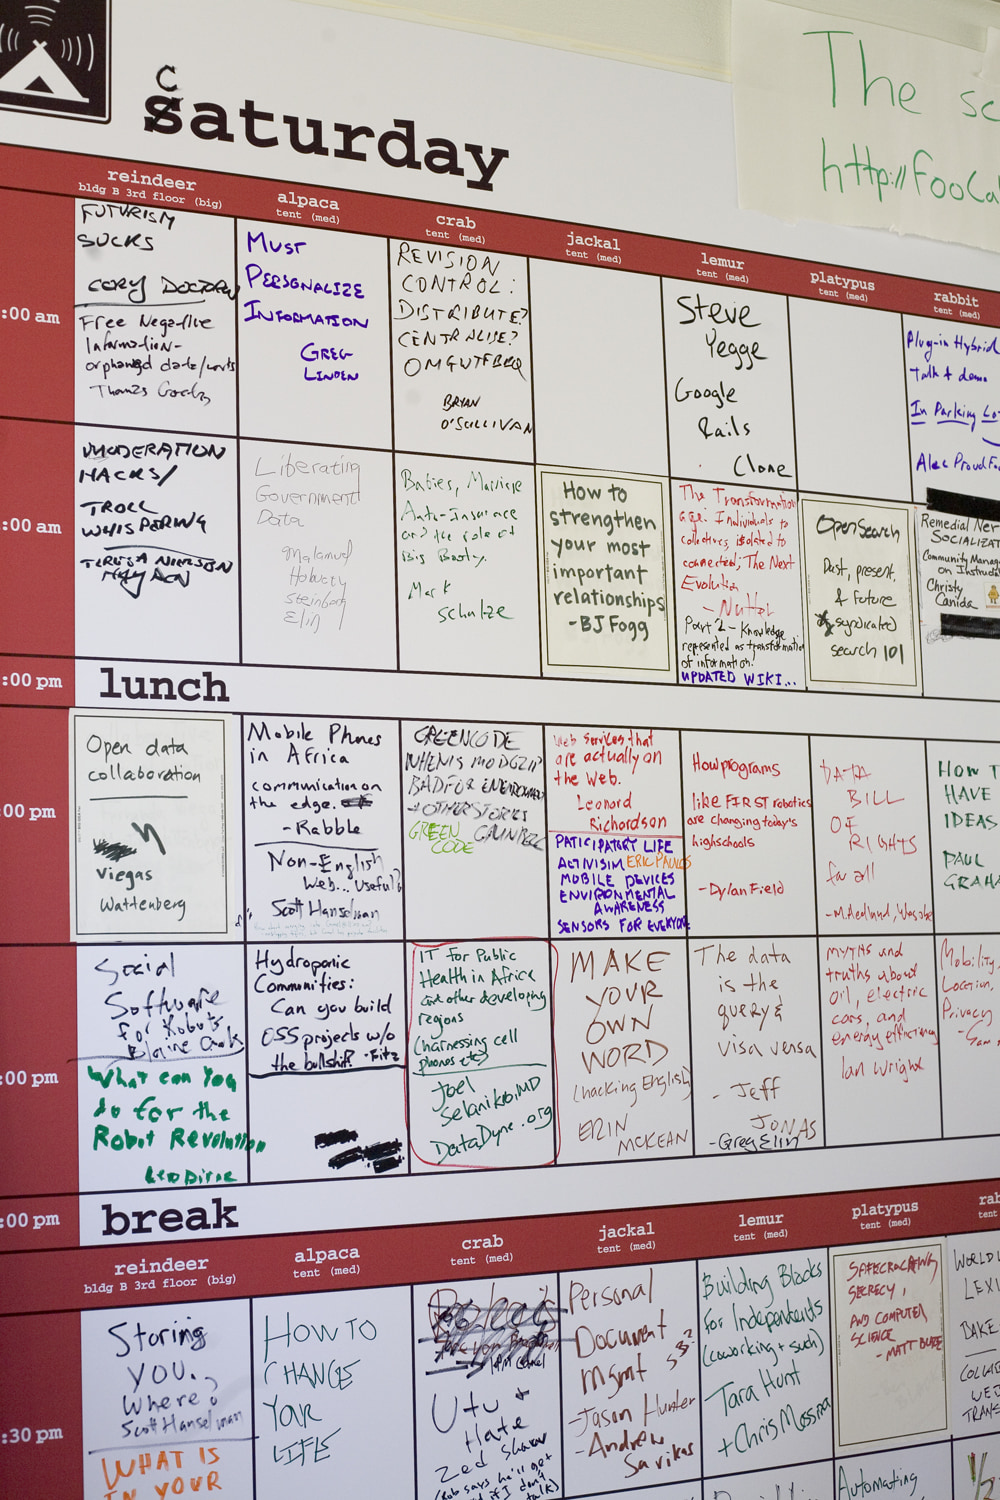 C
saturday
The sc
http://FooCa
reindeer
bldg B 3rd floor (big)
alpaca
tent (med)
crab
tent (med)
jackal
tent (med)
lemur
tent (med)
platypus
tent (med)
rabbit
tent (med)
:00 am
FUTURISM
SUCKS
CORY DOCTOROW
Free Negative
Information-
orphaned data/works
Thomas
MUST
PERSONALIZE
INFORMATION
GREG
LINDEN
REVISION
CONTROL:
DISTRIBUTE?
CENTRALISE?
OMGWTFBBQ
BRYAN
O'SULLIVAN
Steve
Yegge
Google
Rails
Clone
Plug-in Hybrid
Talk + demo
In Parking Lo
Alec Proudfo
:00 am
MODERATION
HACKS/
TROLL
WHISPERING
TERESA NIELSEN
HAYDEN
Liberating
Government
Data
Malamud
Holovaty
Steinberg
Elin
Babies, Marriage
Auto-Insurance
and the role of
Big Booty.
Mark
Schulze
How to
strengthen
your most
important
relationships
-BJ Fogg
The Transformation
Age: Individuals to
collectives, isolated to
connected; The Next
Evolution
- Nuttel
Part 2 - Knowledge
represented as transformation
of information.
UPDATED WIKI...
OpenSearch
Past, present,
& Future
* syndicated
search 101
Remedial Ner
SOCIALIZAT
Community Manag
on Instruc
Christy
Canida
:00 pm
lunch
:00 pm
Open data
collaboration
Viegas
Wattenberg
Mobile Phones
in Africa
communication on
the edge.
- Rabble
Non-English
Web... Useful?
Scott Hanselman
GREENCODE
WHEN IS MODGZIP
BAD FOR ENVIRONMENT
+ OTHER STORIES
GREEN
CODE
Web services that
are actually on
the web.
Leonard
Richardson
PATICIPATORY LIFE
ACTIVISIM ERIC PAULOS
MOBILE DEVICES
ENVIRONMENTAL
AWARENESS
SENSORS FOR EVERYONE
How programs
like FIRST robotics
are changing today's
highschools
- Dylan Field
DATA
BILL
OF
RIGHTS
for all
HOW T
HAVE
IDEAS
PAUL
GRAHA
:00 pm
Social
Software
for Robots
Blaine Cook
What can You
do for the
Robot Revolution
Leo Dirac
Hydroponic
Communities:
Can you build
OSS projects w/o
the bullshit? - Fitz
IT for Public
Health in Africa
and other developing
regions
(harnessing cell
phones etc)
Joel
Selanikio, MD
DataDyne.org
MAKE
YOUR
OWN
WORD
(hacking English)
ERIN
MCKEAN
The data
is the
query &
visa versa
- Jeff
JONAS
- Greg Elin
myths and
truths about
oil, electric
cars, and
energy efficiency
Ian Wright
Mobility,
Location,
Privacy
:00 pm
break
reindeer
bldg B 3rd floor (big)
alpaca
tent (med)
crab
tent (med)
jackal
tent (med)
lemur
tent (med)
platypus
tent (med)
rab
tent
:30 pm
Storing
you..
Where?
Scott Hanselman
WHAT IS
IN YOUR
HOW TO
CHANGE
YOUR
LIFE
Utu +
Hate
Zed Shaw
Personal
Document
mgmt
- Jason Hunter
- Andrew
Savikas
Building Blocks
for Independents
(coworking + such)
Tara Hunt
+ Chris Messina
SAFECRACKING,
SECRECY,
AND COMPUTER
SCIENCE
- MATT BLAZE
WORLD
LEXI
BAKE
COLLA
WEB
TRANS
Automating